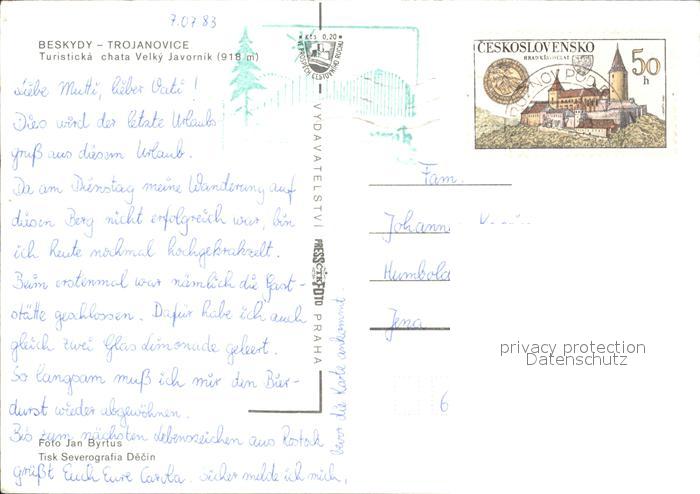 7.07 83
BESKYDY – TROJANOVICE
Turistická chata Velký Javorník (918 m)
Liebe Mutti, lieber Vati!
Dies wird der letzte Urlaubs
gruß aus diesem Urlaub.
Da am Dienstag meine Wanderung auf
diesen Berg nicht erfolgreich war, bin
ich heute nochmal hochgekrakzelt.
Beim erstenmal war nämlich die Gast-
stätte geschlossen. Dafür habe ich auch
gleich zwei Glas Limonade geleert.
So langsam muß ich mir den Bier-
durst wieder abgewöhnen.
Bis zum nächsten Lebenszeichen aus Rostock
grüßt Euch Eure Carola. Sicher melde ich mich,
bevor die Karte ankommt.
Foto Jan Byrtus
Tisk Severografia Děčín
Kčs 0,20
VYDAVATELSTVÍ
PRESSFOTO
PRAHA
ČESKOSLOVENSKO
50
h
Fam.
Johann
Humbold
Jena
6
privacy protection
Datenschutz